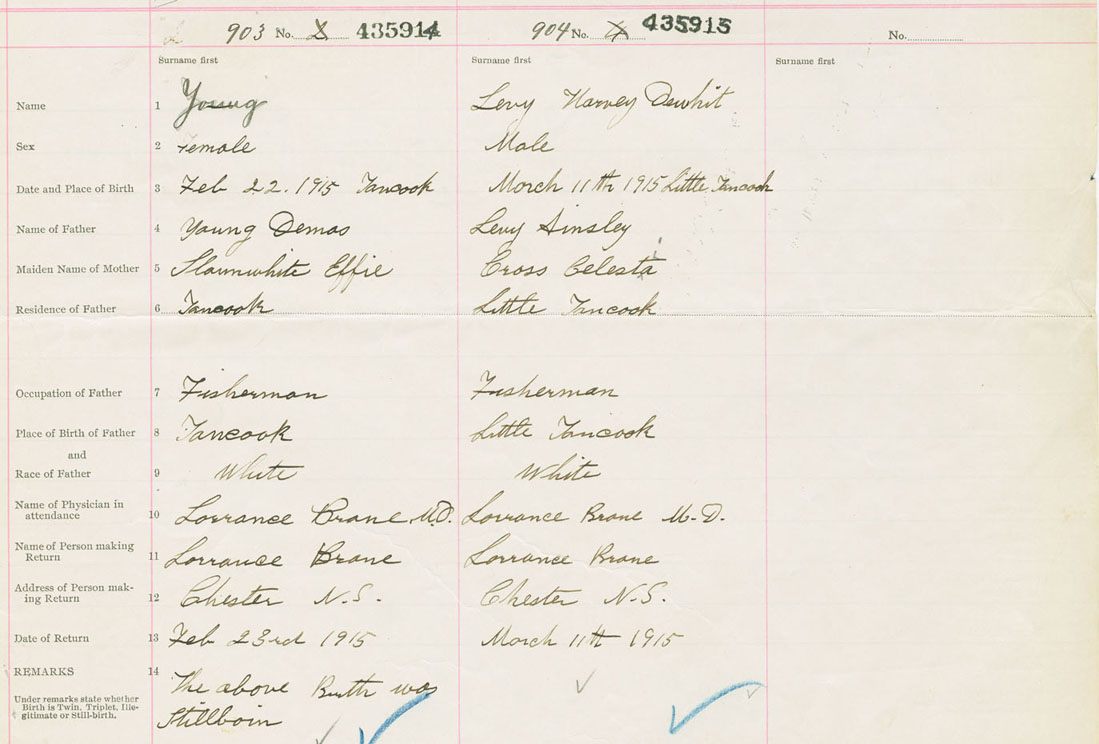 903 No. X 435914 904 No. X 435915 No.
Surname first Surname first Surname first
Name 1 Young Levy Harvey Dewhit
Sex 2 Female Male
Date and Place of Birth 3 Feb 22. 1915 Tancook March 11th 1915 Little Tancook
Name of Father 4 Young Demas Levy Ainsley
Maiden Name of Mother 5 Slaunwhite Effie Cross Celesta
Residence of Father 6 Tancook Little Tancook
Occupation of Father 7 Fisherman Fisherman
Place of Birth of Father 8 Tancook Little Tancook
and
Race of Father 9 White White
Name of Physician in
attendance 10 Lorrance Brane M.D. Lorrance Brane M.D.
Name of Person making
Return 11 Lorrance Brane Lorrance Brane
Address of Person mak-
ing Return 12 Chester N.S. Chester N.S.
Date of Return 13 Feb 23rd 1915 March 11th 1915
REMARKS 14 The above Birth was
Stillborn
Under remarks state whether
Birth is Twin, Triplet, Ille-
gitimate or Still-birth.